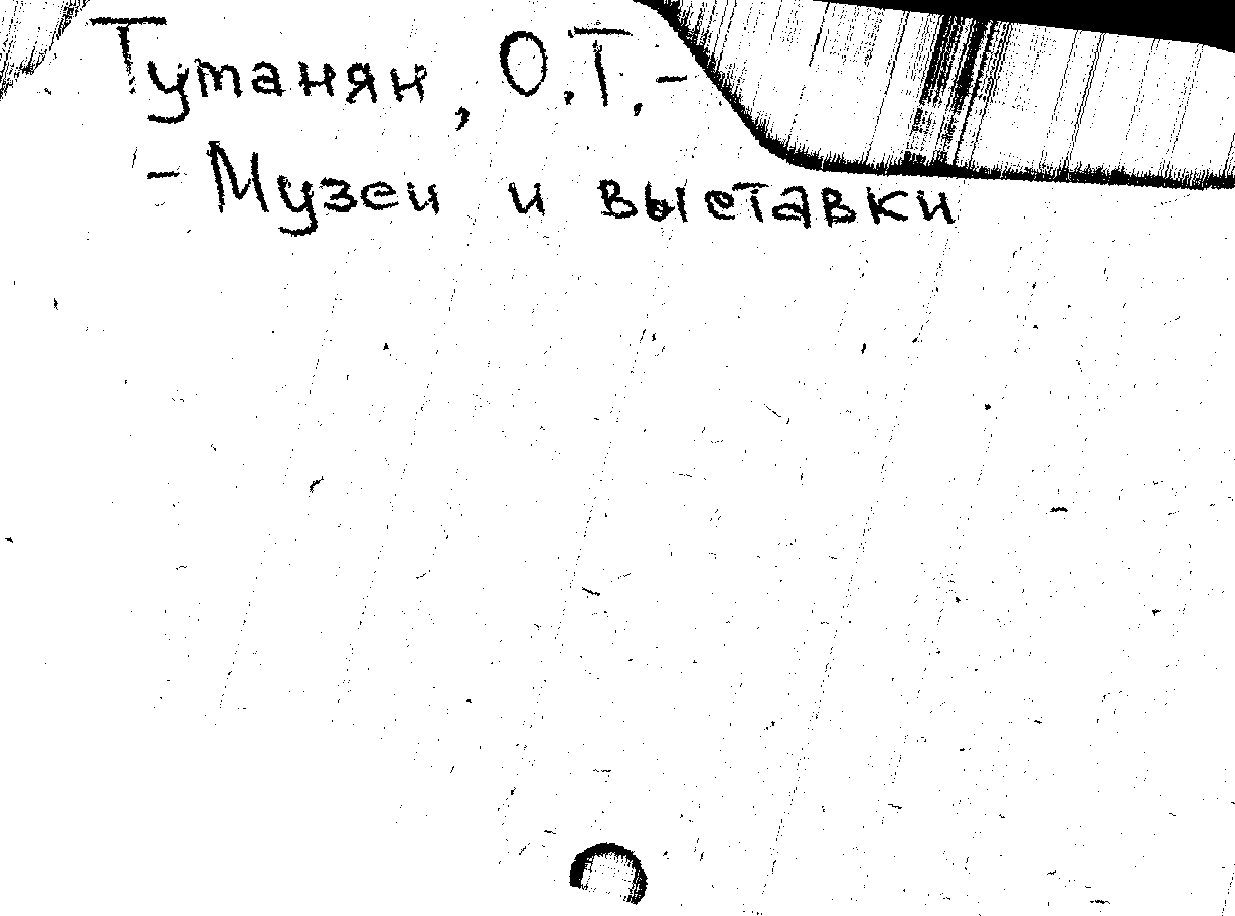 Тутанян, О.Т.-
- Музеи и выставки